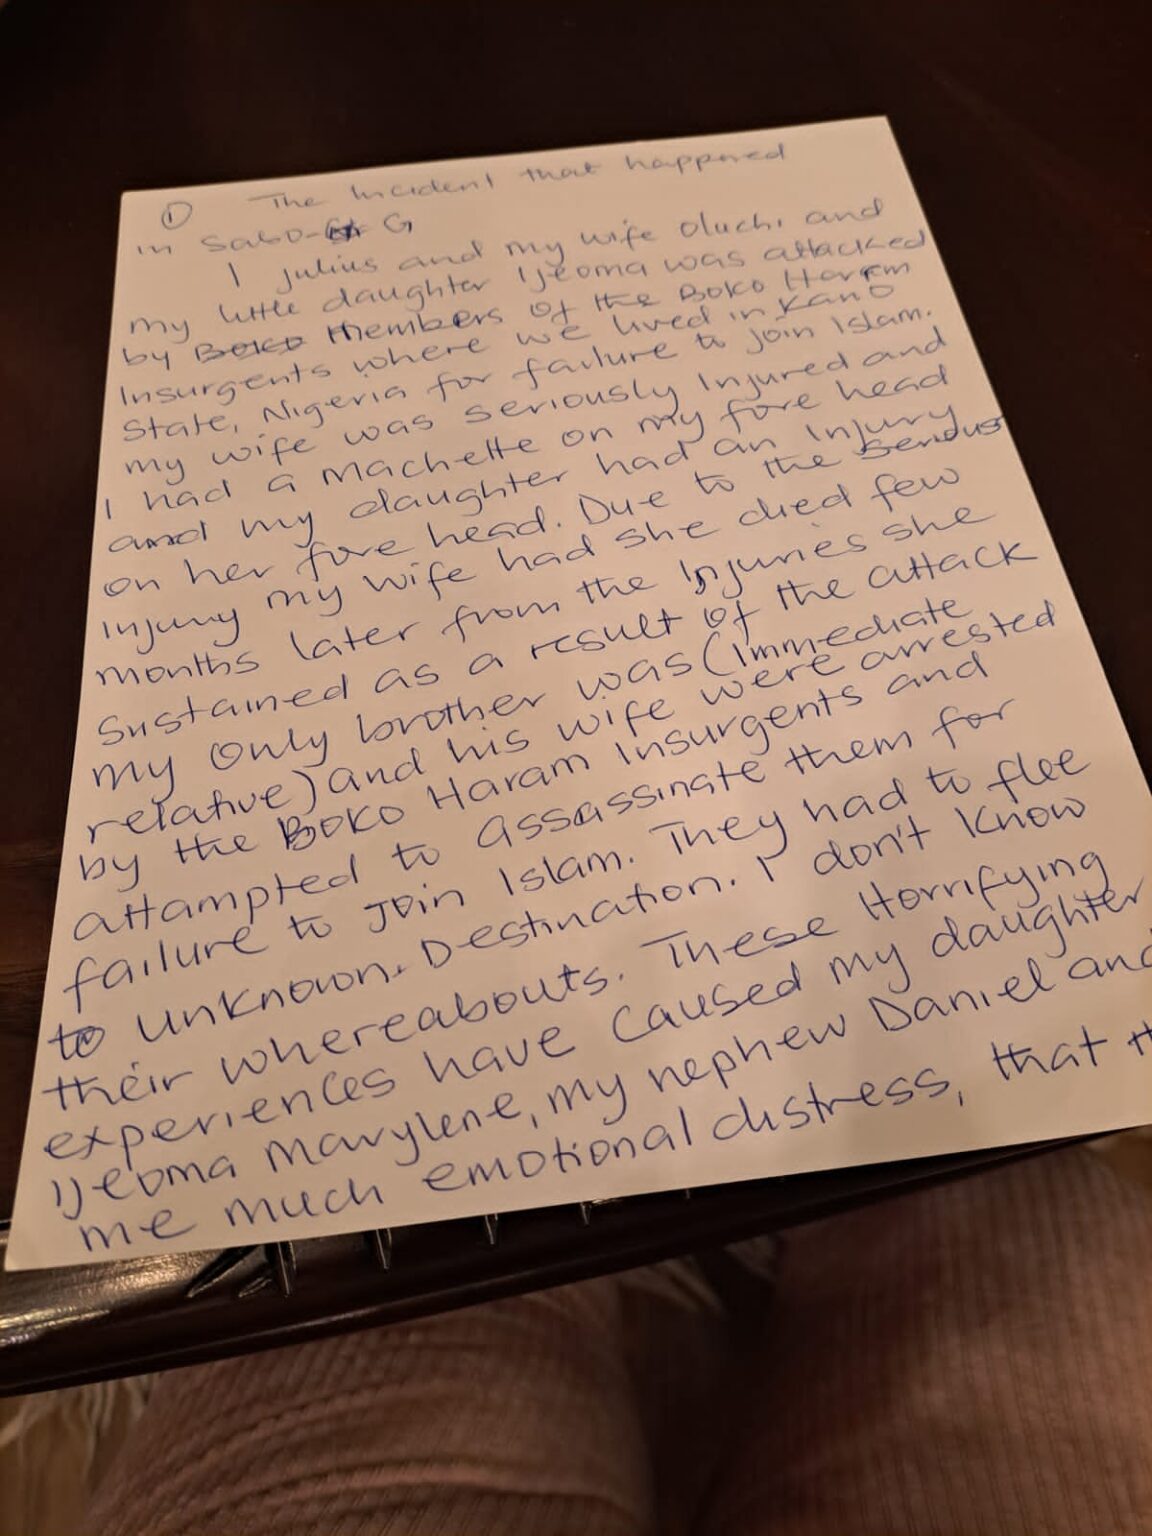 ① The Incident that happened
in Sabo-G
I Julius and my wife Oluchi and
my little daughter Ijeoma was attacked
by Boko Members of the Boko Haram
Insurgents where we lived in Kano
State, Nigeria for failure to join Islam.
my wife was seriously Injured and
I had a Machette on my fore head
and my daughter had an Injury
on her fore head. Due to the serious
injury my wife had she died few
months later from the Injuries she
Sustained as a result of the attack
my Only brother was (Immediate
relative) and his wife were arrested
by the Boko Haram Insurgents and
attampted to assassinate them for
failure to Join Islam. They had to flee
to unknown. Destination. I don't know
their whereabouts. These Horrifying
experiences have caused my daughter
Ijeoma Marylene, my nephew Daniel and
me much emotional distress, that